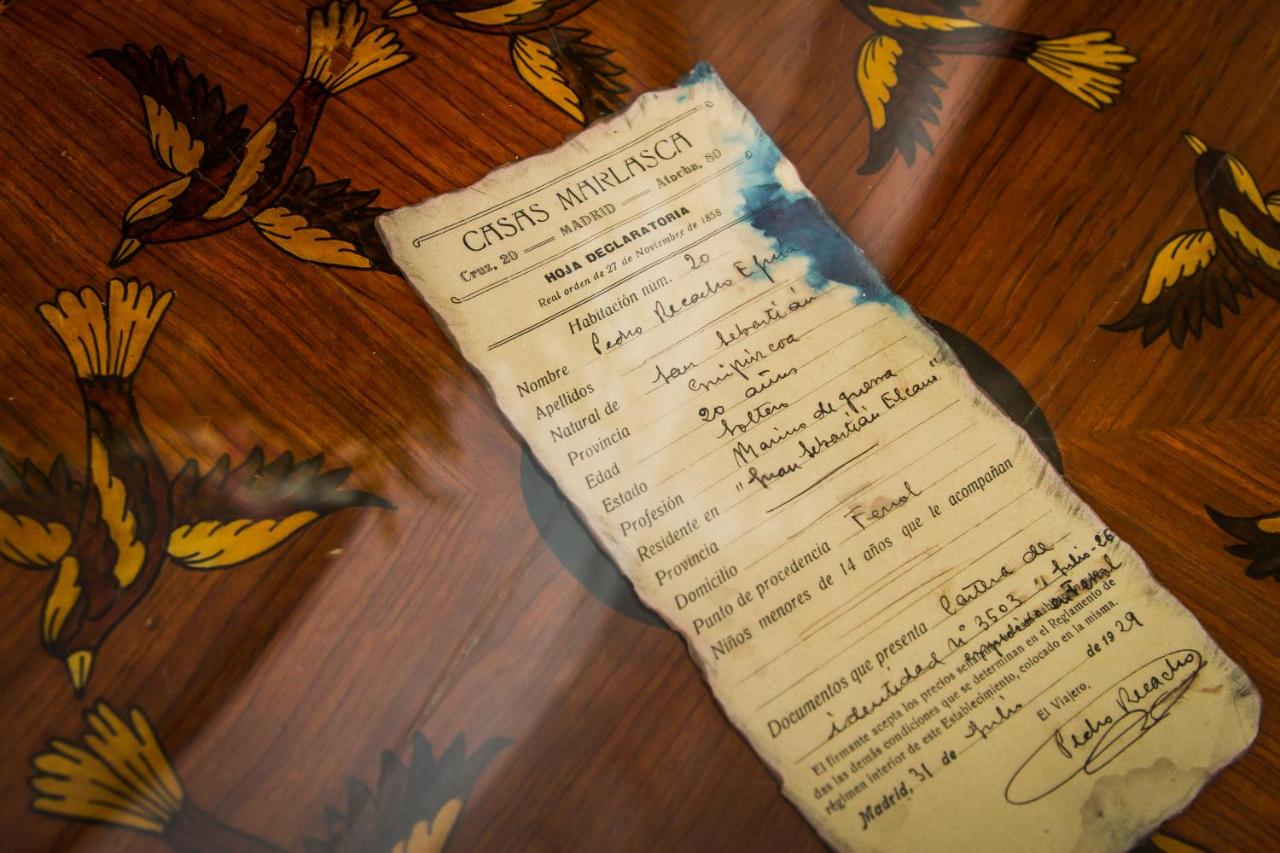 CASAS MARLASCA
Cruz, 20 — MADRID — Atocha, 80
HOJA DECLARATORIA
Real orden de 27 de Noviembre de 1858
Habitación núm. 20
Nombre Pedro Recacho Eguía
Apellidos
Natural de San Sebastián
Provincia Guipúzcoa
Edad 20 años
Estado Soltero
Profesión Marino de guerra
Residente en "Juan Sebastián Elcano"
Provincia
Domicilio
Punto de procedencia Ferrol
Niños menores de 14 años que le acompañan
Documentos que presenta Cartera de
identidad nº 3503 Julio-26
expedida Ferrol
El firmante acepta los precios
das las demás condiciones que se determinan en el Reglamento de
régimen interior de este Establecimiento, colocado en la misma.
Madrid, 31 de Julio de 1929
El Viajero,
Pedro Recacho